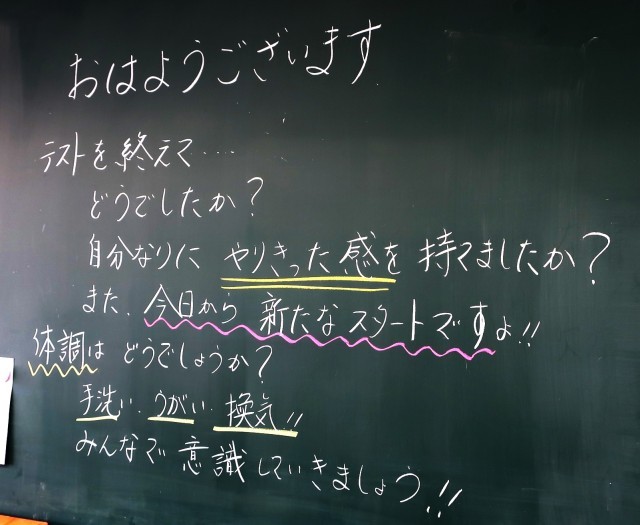 おはようございます
テストを終えて…
どうでしたか?
自分なりに やりきった感を 持てましたか?
また、今日から 新たなスタートですよ!!
体調は どうでしょうか?
手洗い、うがい、換気!!
みんなで 意識していきましょう!!